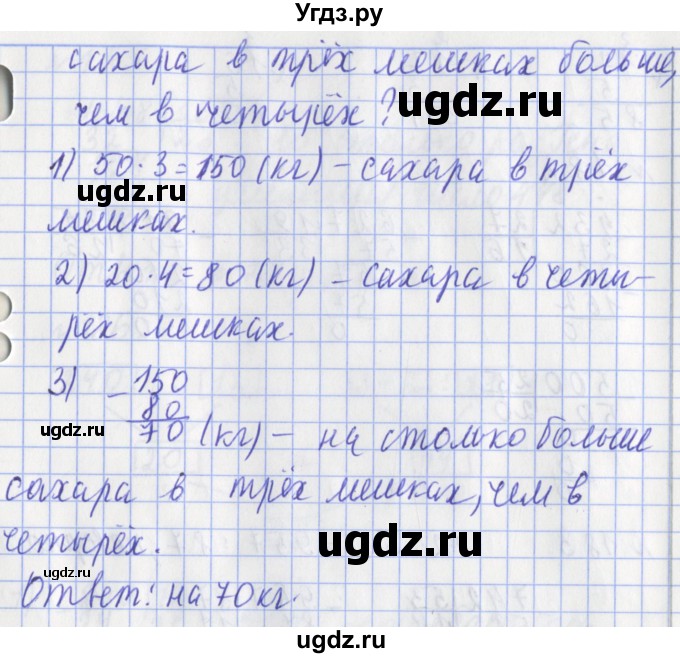 Угдз.ру
сахара в трёх мешках больше,
чем в четырёх?
ugdz.ru
1) 50·3=150 (кг) – сахара в трёх
ugdz.ru
мешках.
2) 20·4=80 (кг) – сахара в четы-
рёх мешках.
ugdz.ru
3) – 150
80
ugdz.ru
70 (кг) – на столько больше
сахара в трёх мешках, чем в
ugdz.ru
четырёх.
ugdz.ru
Ответ: на 70 кг.
ugdz.ru
ugdz.ru